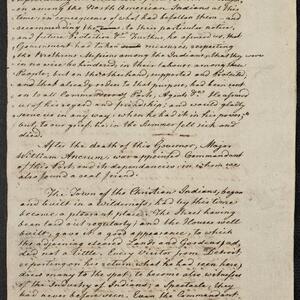 in among the North American Indians at this
time, in consequence of what had befallen them — and
according to their particular notice
and future Protection &c. Further, he assured us, that
Government had taken such measures, respecting
the Brethrens Missions among the Indians, that they were
in no wise be hindered, in their labours among these
People; but on the other hand, supported and Protected,
and that already orders to that purpose, had been sent
on to all Commanders of Posts, Agents &c. He assured
us of his regard and friendship; and would gladly
serve us in any way, when he had it in his power;
but, to our grief, he in the Summer fell sick and
died.
After the death of this Governor, Major
William Ancrum, was appointed Commandant
of this Post, and its dependencies, in whom we
also found a real friend.
The Town of the Christian Indians, began
and built in a Wilderness, had by this time
become a pleasant place. The Street having
been laid out regularly; and the Houses well
built, gave it a good appearance, to which
the adjoining cleared Lands and Gardens, ad,
ded not a little. Every Visitor from Detroit,
reporting on his return what he had seen here,
drew many to the spot; to become also witnesses
of the Industry of Indians; a Spectacle, they
had never before seen. Even the Commandant,